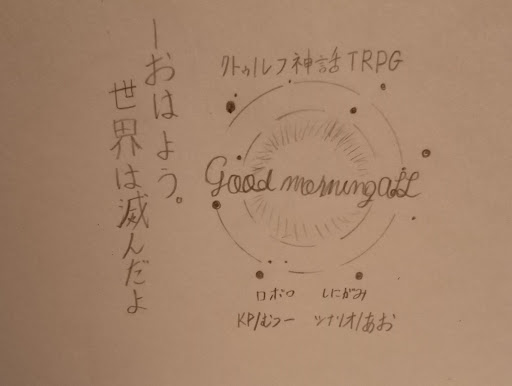 ーおはよう。
世界は滅んだよ
クトゥルフ神話TRPG
Good morning all
ロボつ しにがみ
KP/むつー シナリオ/あお